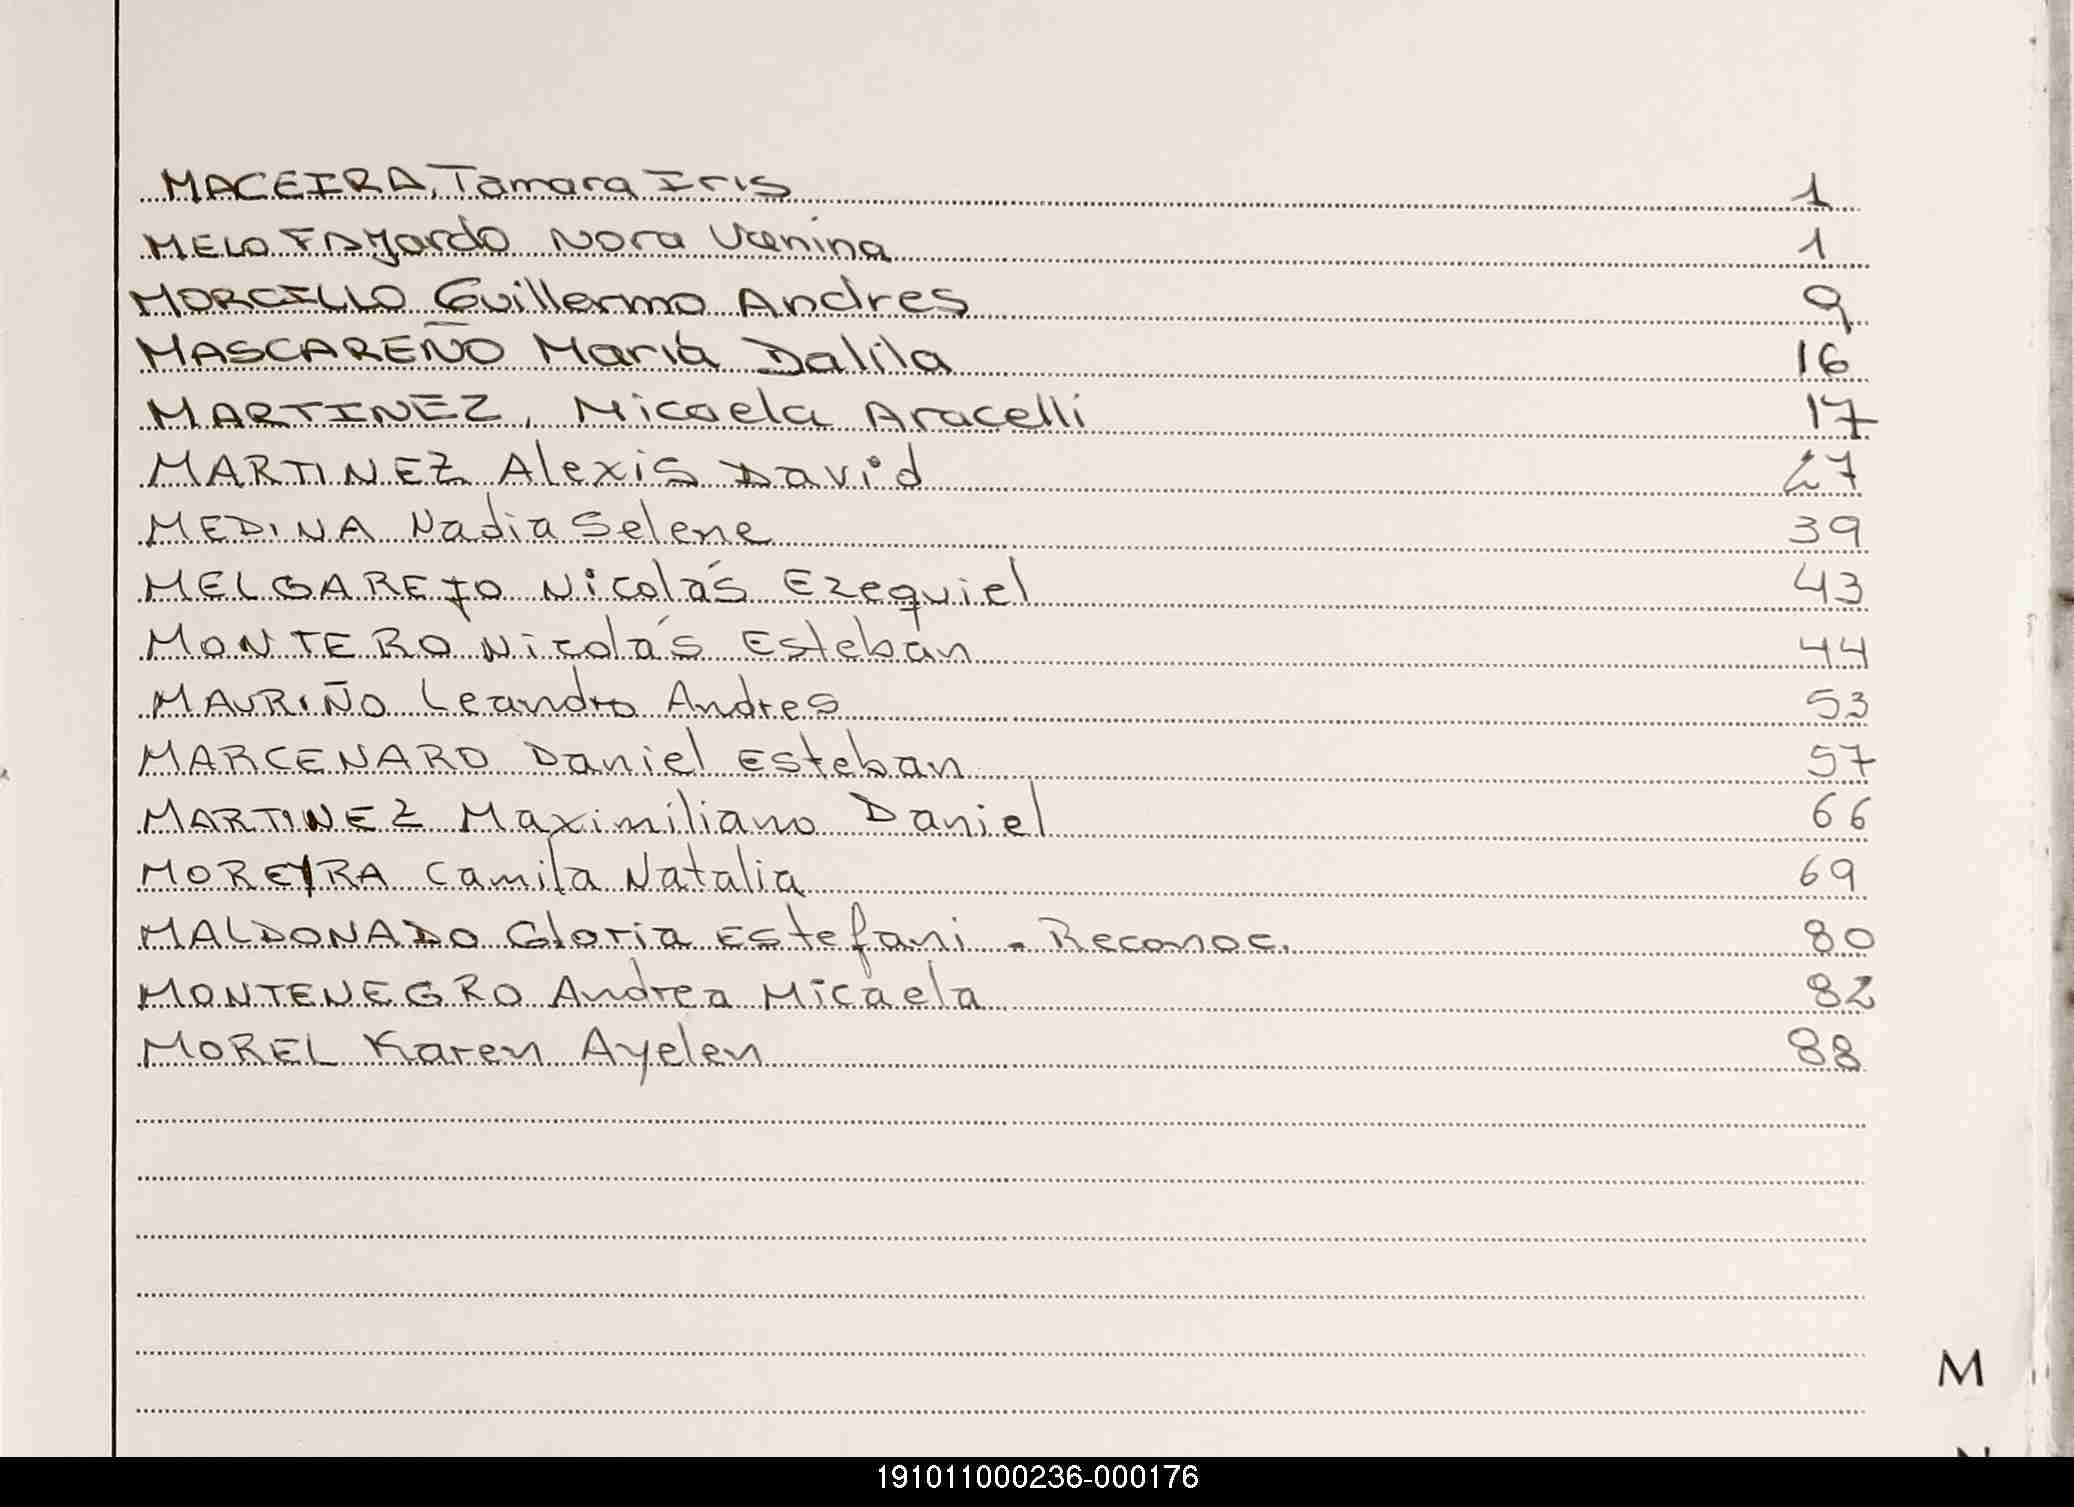 MACEIRA, Tamara Iris 1
MELO FAJardo Nora Vanina 1
MORCILLO Guillermo Andres 9
MASCAREÑO María Dalila 16
MARTINEZ, Micaela Aracelli 17
MARTINEZ Alexis David 27
MEDINA Nadia Selene 39
MELGAREJO Nicolás Ezequiel 43
MONTERO Nicolás Esteban 44
MAURIÑO Leandro Andres 53
MARCENARO Daniel Esteban 57
MARTINEZ Maximiliano Daniel 66
MOREYRA Camila Natalia 69
MALDONADO Gloria Estefani - Reconoc. 80
MONTENEGRO Andrea Micaela 82
MOREL Karen Ayelen 88
M
191011000236-000176